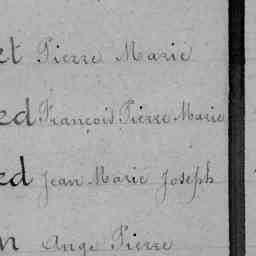 et Pierre Marie
ed François Pierre Marie
ed Jean Marie Joseph
n Ange Pierre